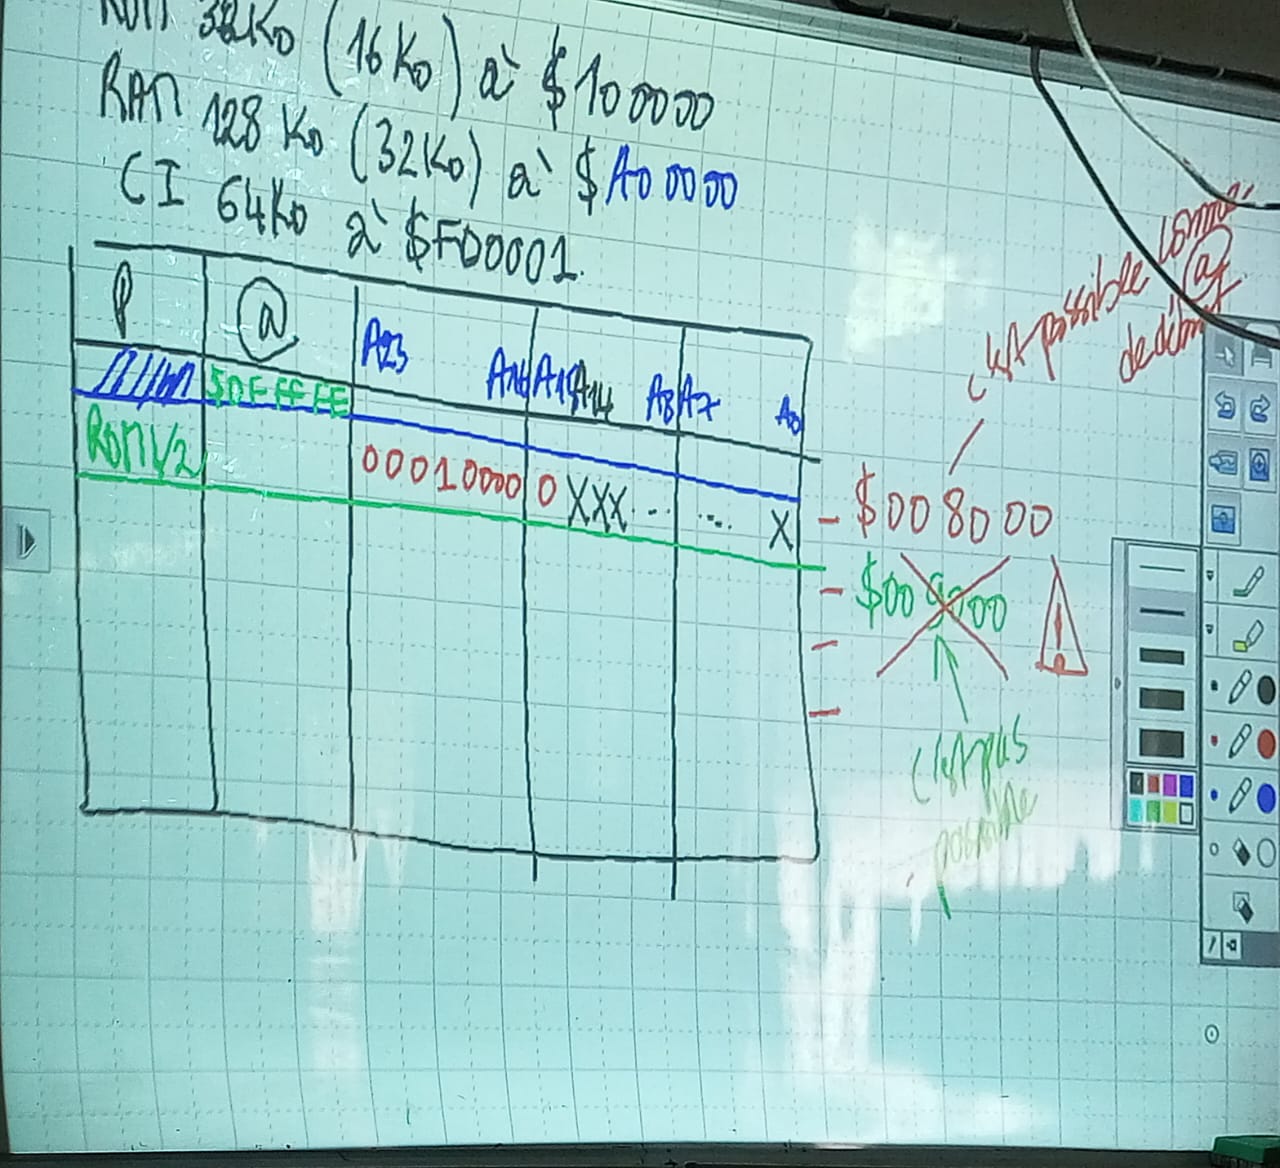 ROM 32Ko (16Ko) à $100000
RAM 128 Ko (32Ko) à $A00000
CI 64Ko à $FD0001
P @ A23 A16 A15 A14 A8 A7 A0
$0FFFFE
ROM1/2 00010000 0XXX... ... X
c'est possible comme
@
de début
- $008000
- $009000
!
c'est pas
possible